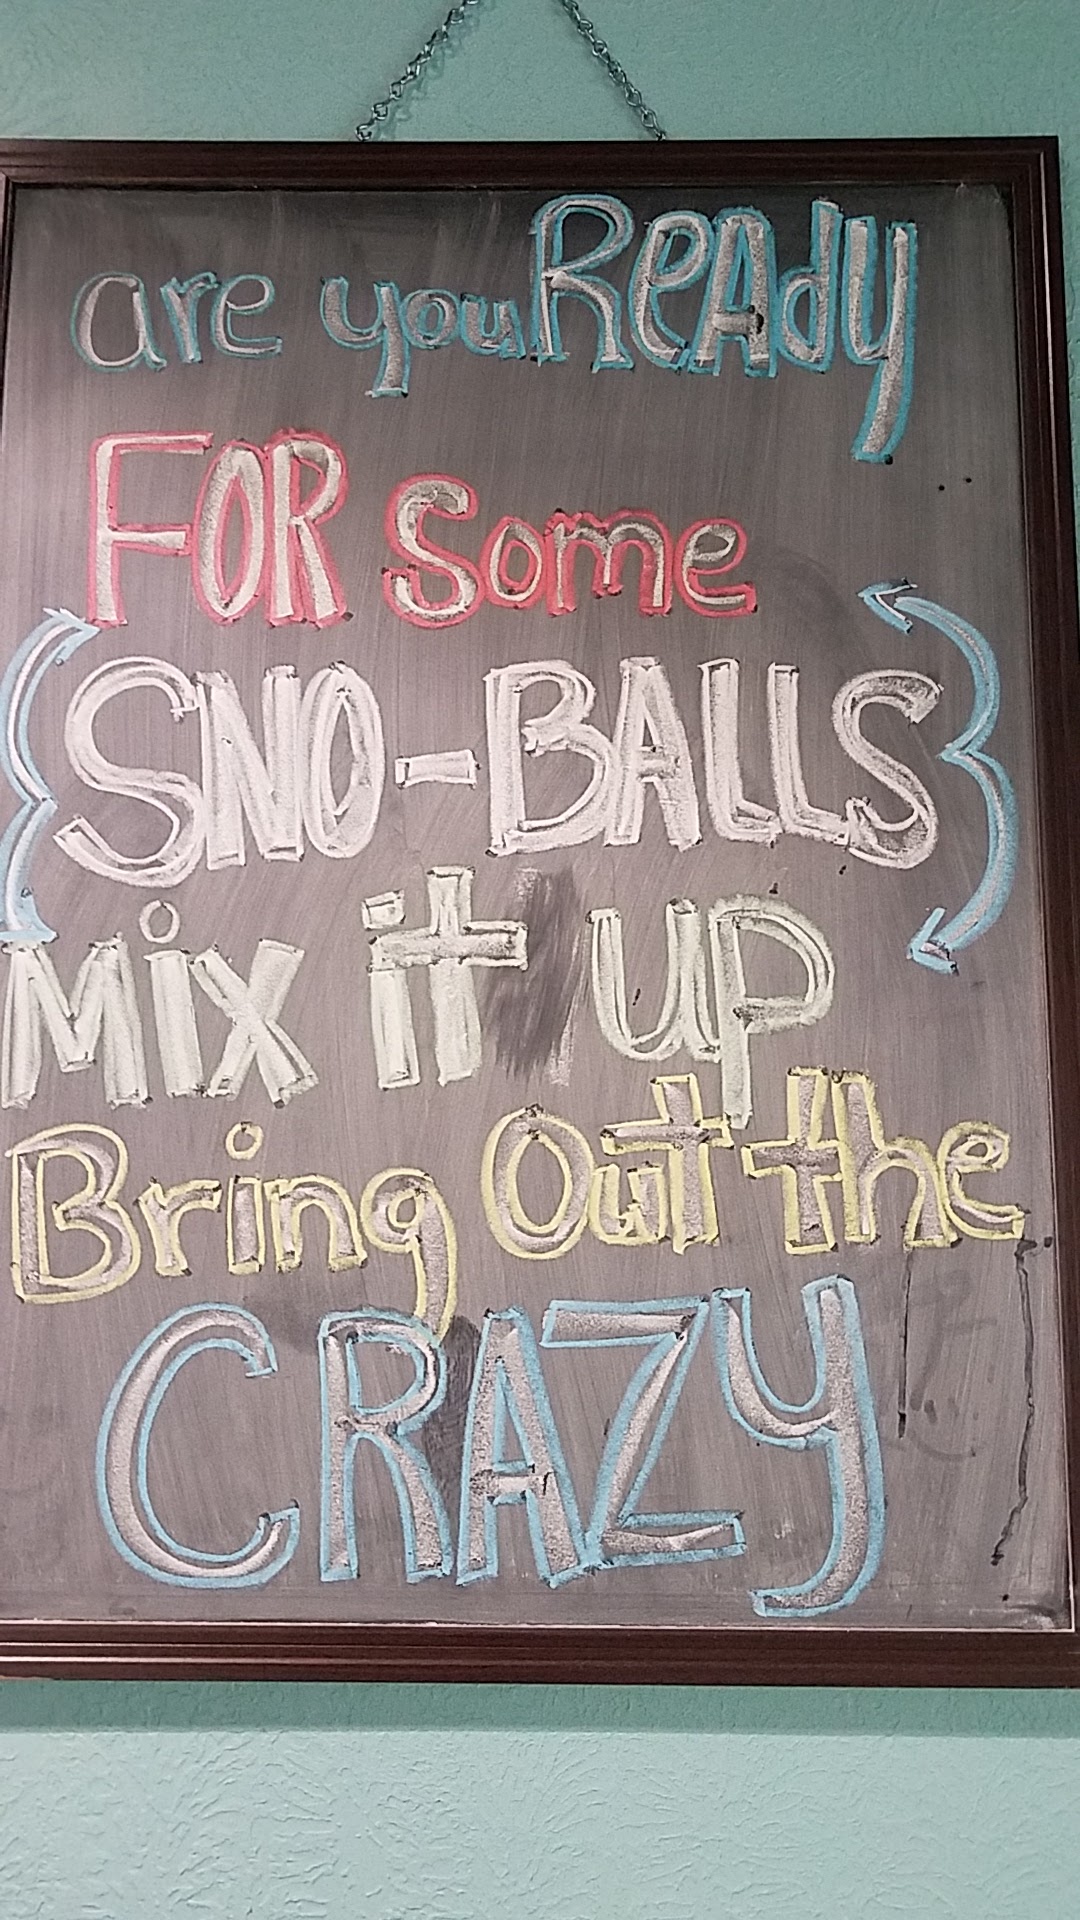 are you ReAdy
FOR Some
SNO-BALLS
Mix it up
Bring Out the
CRAZY